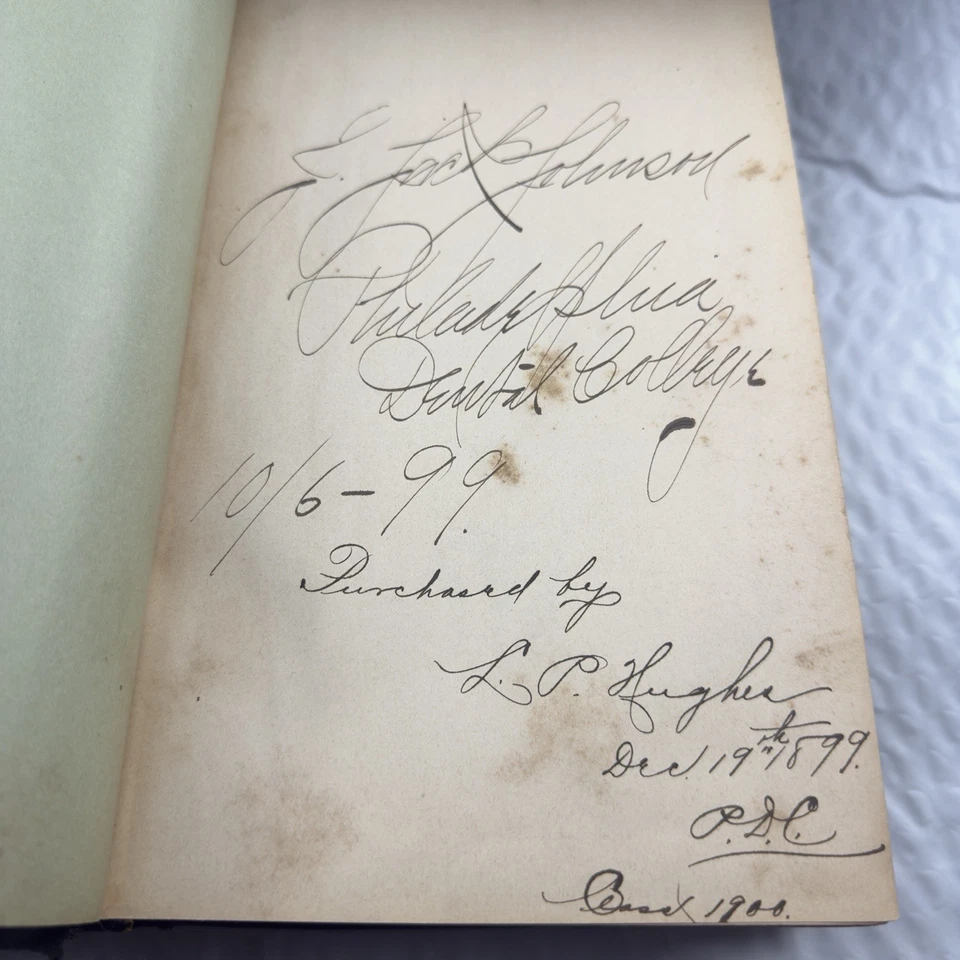 E. Jack Johnson
Philadelphia
Dental College
10/6-99.
Purchased by
L. P. Hughes
Dec. 19th 1899.
P.D.C.
1900.